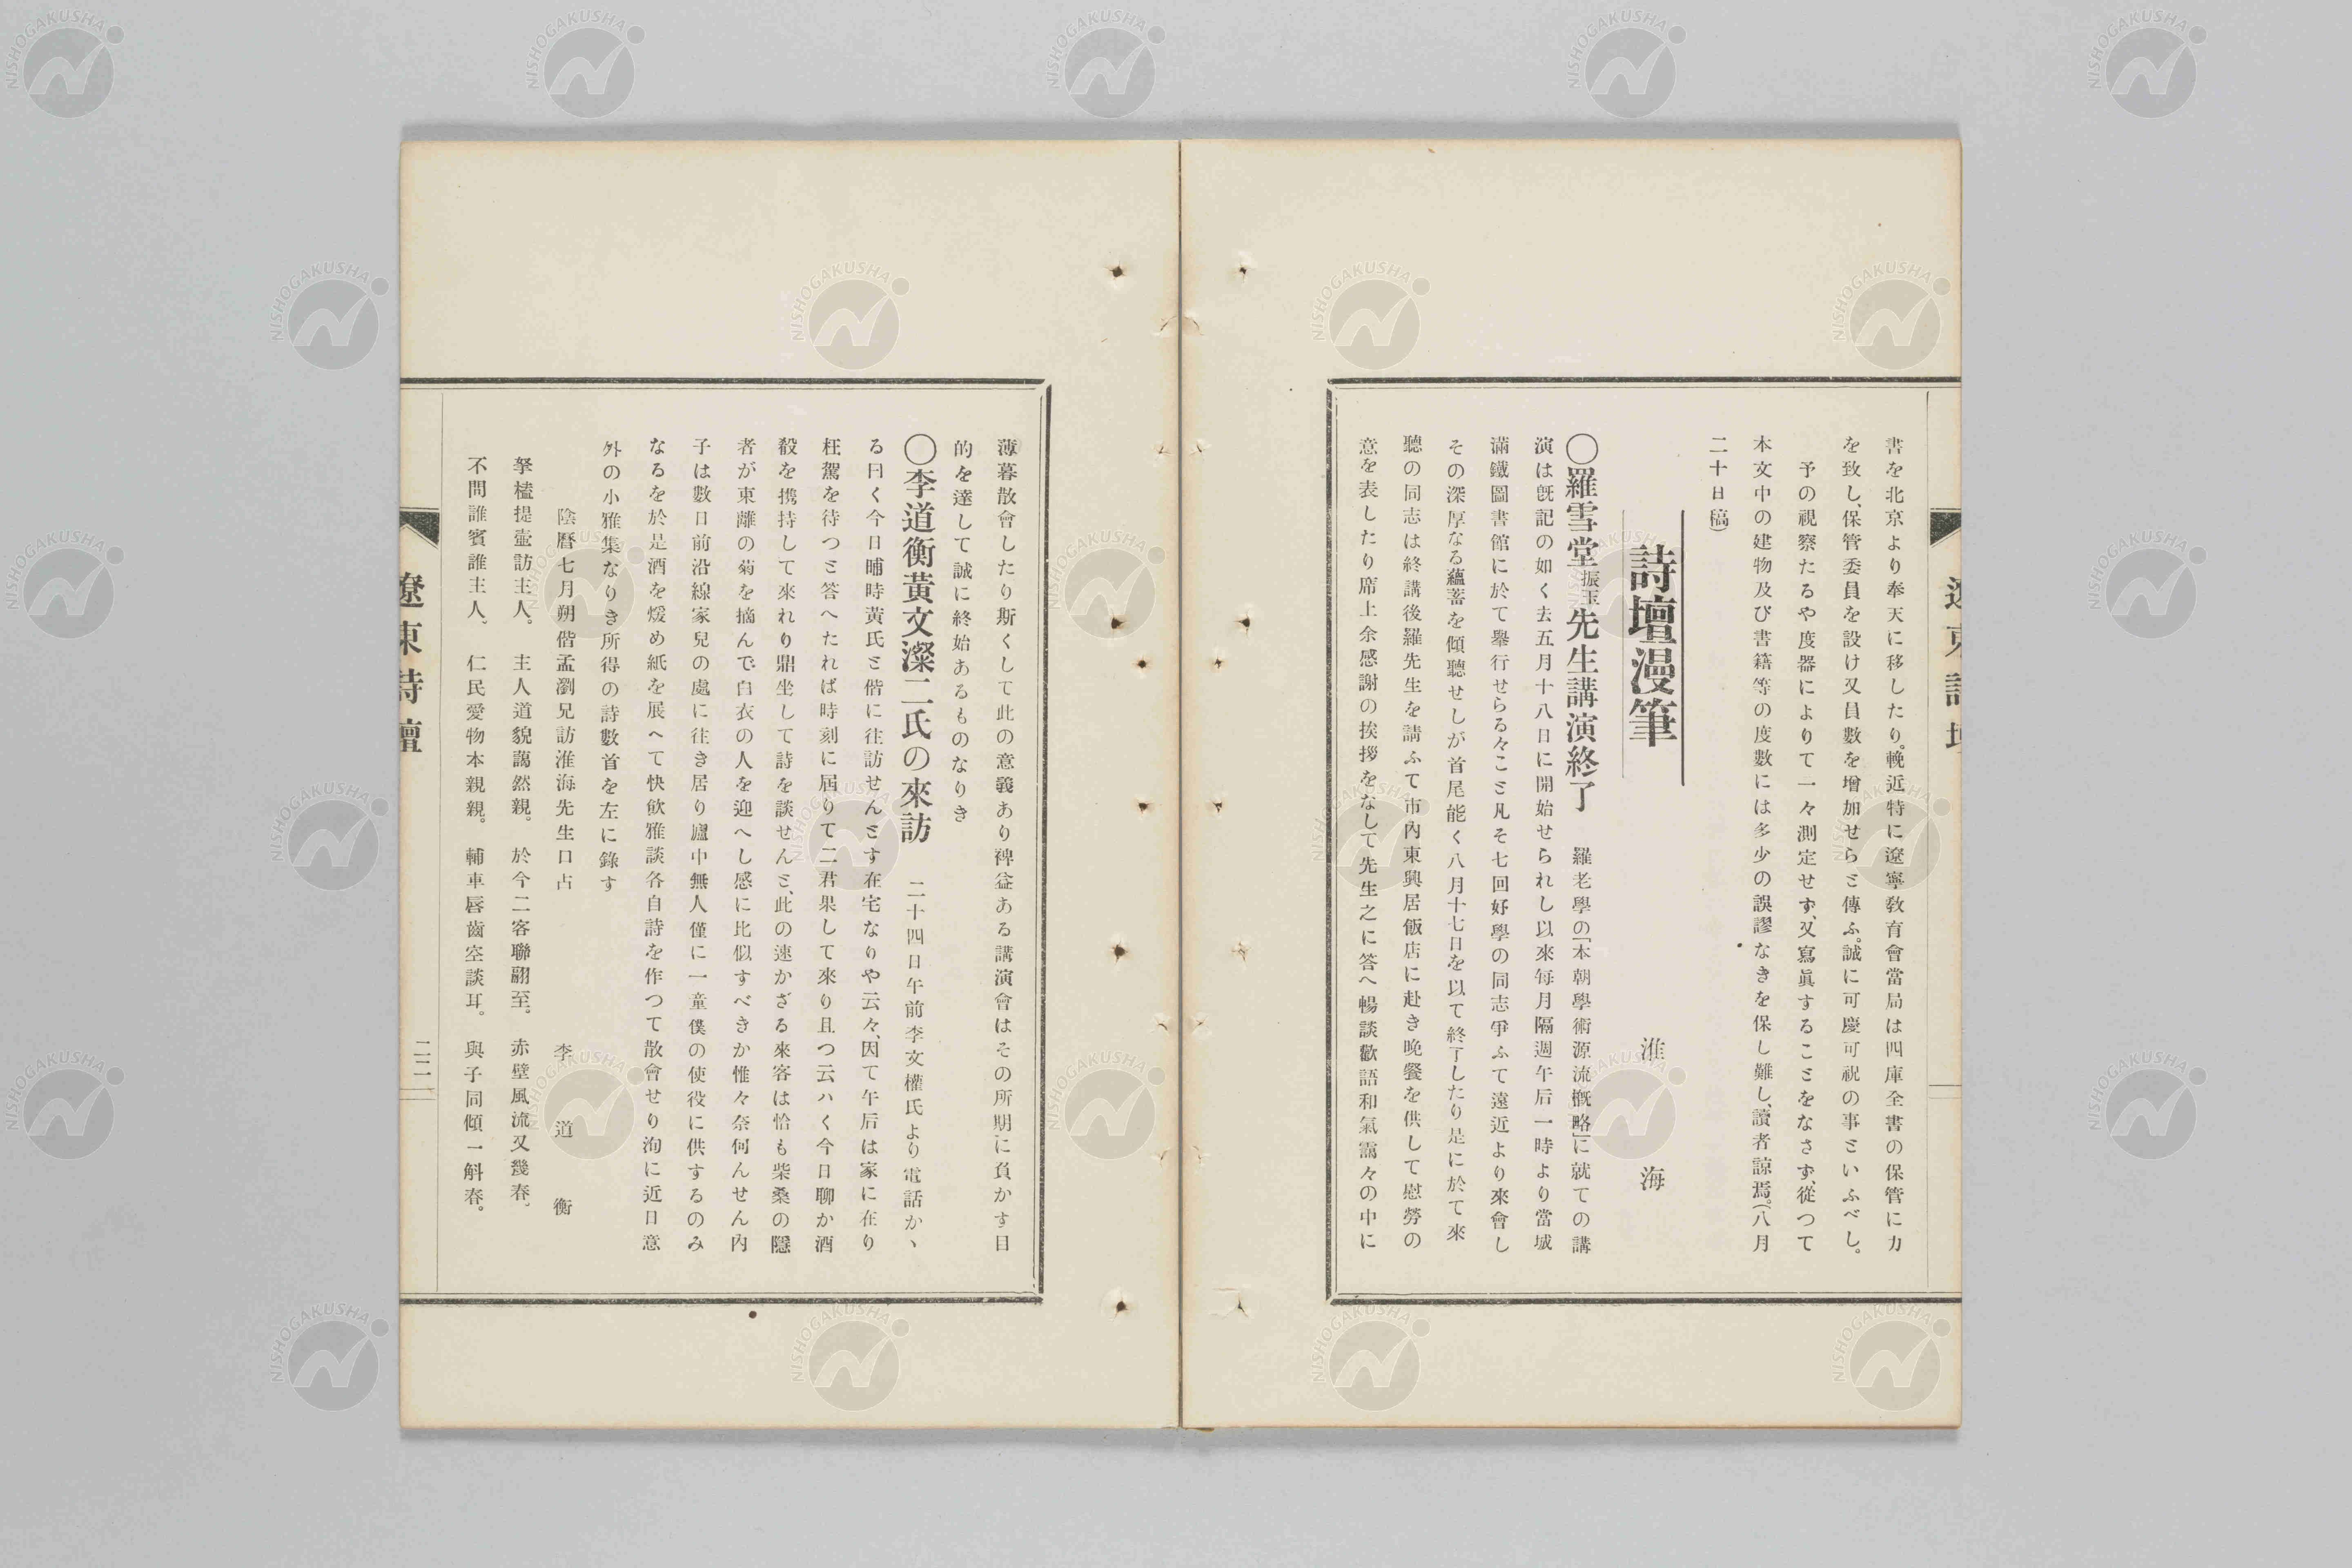 書を北京より奉天に移したり。輓近特に遼寧敎育會當局は四庫全書の保管に力
を致し、保管委員を設け又員數を增加せらミ傳ふ。誠に可慶可祝の事ミいふべし。
予の視察たるや度器によりて一々測定せず、又寫眞することミをなさず、從つて
本文中の建物及び書籍等の度數には多少の誤謬なきを保し難し、讀者諒焉。(八月
二十日稿)
詩壇漫筆
淮海
〇羅雪堂振玉先生講演終了 羅老學の「本朝學術源流槪略」に就ての講
演は旣記の如く去五月十八日に開始せられし以來每月隔週午后一時より當城
滿鐵圖書館に於て擧行せらる々こミ凡そ七回好學の同志爭ふて遠近より來會し
その深厚なる蘊蓄を傾聽せしが首尾能く八月十七日を以て終了したり是に於て來
聽の同志は終講後羅先生を請ふて市內東興居飯店に赴き晚餐を供して慰勞の
意を表したり席上余感謝の挨拶をなして先生之に答へ暢談歡語和氣靄々の中に
薄暮散會したり斯くして此の意義あり裨益ある講演會はその所期に負かす目
的を達して誠に終始あるものなりき
〇李道衡黃文濴二氏の來訪 二十四日午前李文權氏より電話かゝ
る曰く今日晡時黃氏ミ偕に往訪せんミす在宅なりや云々、因て午后は家に在り
枉駕を待つミ答へたれば時刻に屆りて二君果して來り且つ云ハく今日聊か酒
殽を携持して來れり鼎坐して詩を談せんミ、此の速かざる來客は恰も柴桑の隱
者が東離の菊を摘んで白衣の人を迎へし感に比似すべきか惟々奈何んせん內
子は數日前沿線家兒の處に往き居り廬中無人僅に一童僕の使役に供するのみ
なるを於是酒を煖め紙を展へて快飮雅談各自詩を作つて散會せり洵に近日意
外の小雅集なりき所得の詩數首を左に錄す
陰曆七月朔偕孟瀏兄訪淮海先生口占 李道衡
拏榼提壷訪主人。 主人道貌藹然親。 於今二客聯翩至。 赤壁風流又幾春。
不問誰賓誰主人。 仁民愛物本親親。 輔車唇齒空談耳。 與子同傾一斛春。
遼東詩壇
二二